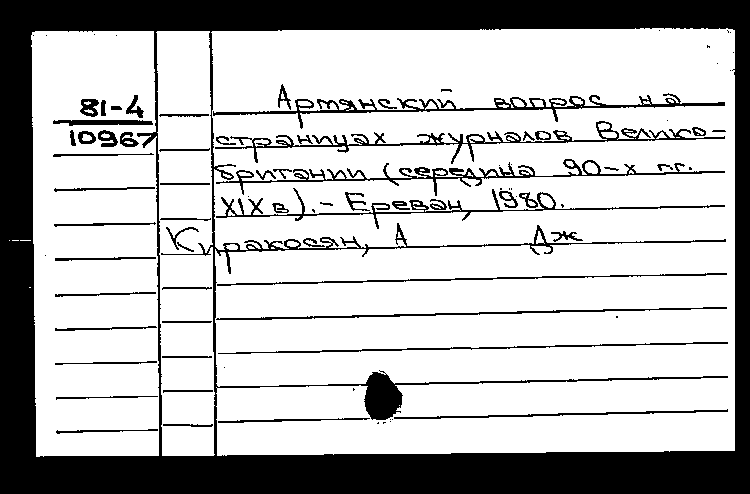 81-4
10967
Армянский вопрос на
страницах журналов Велико-
британии (середина 90-х гг.
XIX в). - Ереван, 1980.
Киракосян, А Дж